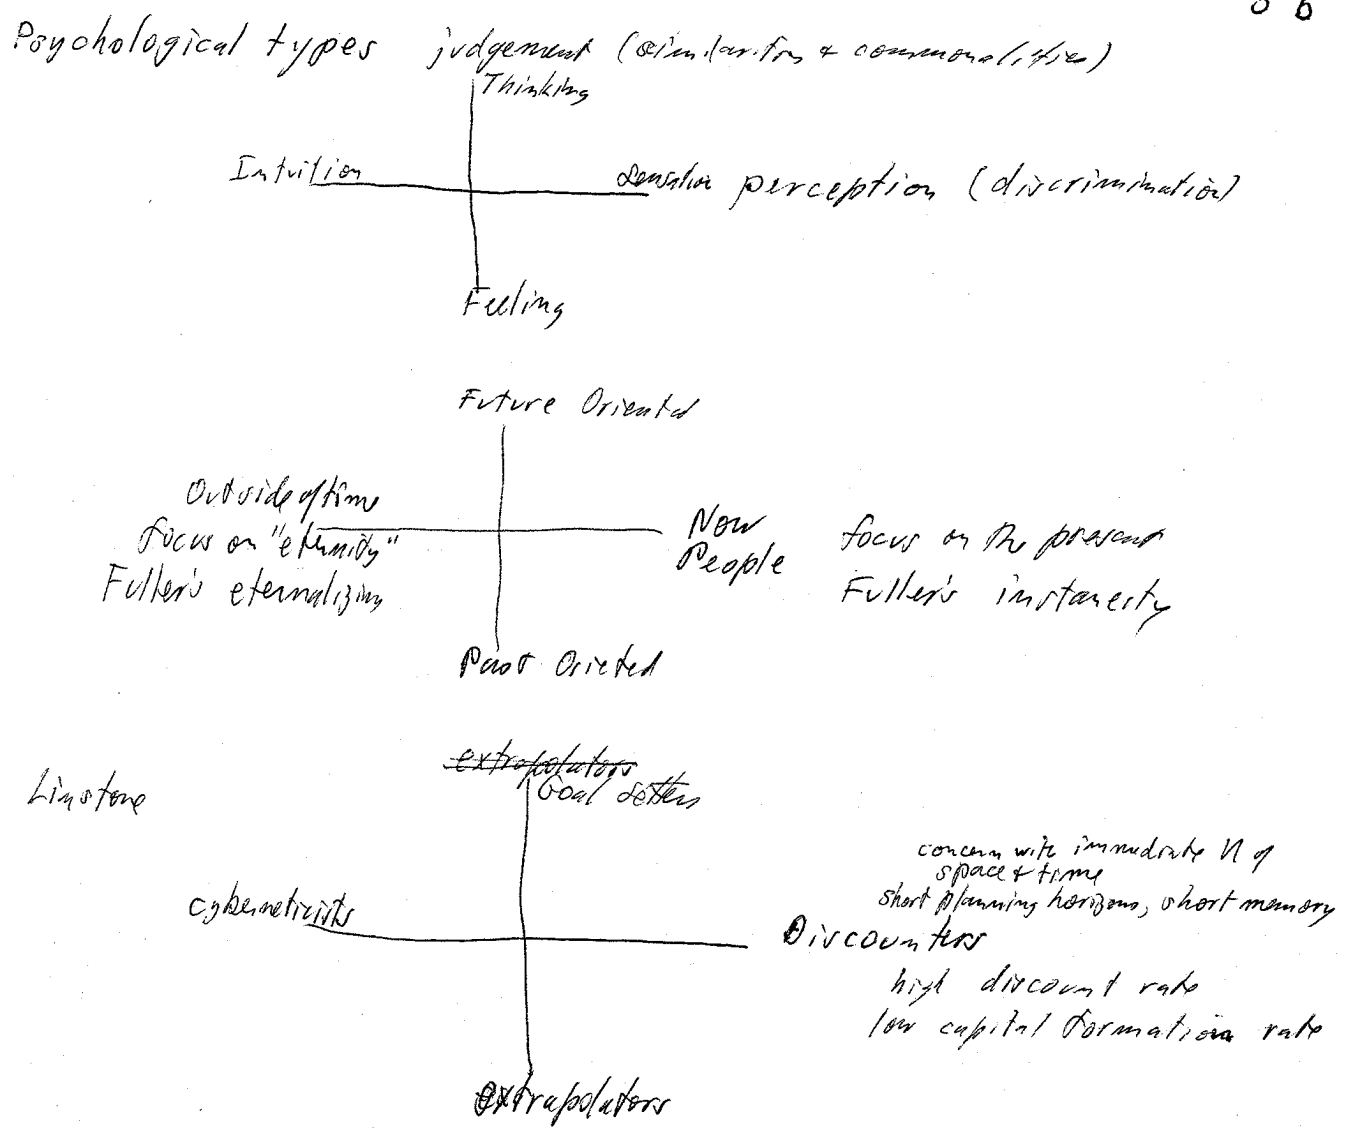 8 6
Psychological types judgement (similarities & commonalities)
Thinking
Intuition
Sensation perception (discrimination)
Feeling
Future Oriented
Outside of time
focus on "eternity"
Fuller's eternalizing
Now
People
focus on the present
Fuller's instaneity
Past Orieted
extrapolators
Linstone
Goal Setters
concern with immediate n of
space & time
short planning horizons, short memory
cyberneticists
Discounters
high discount rate
low capital formation rate
extrapolators